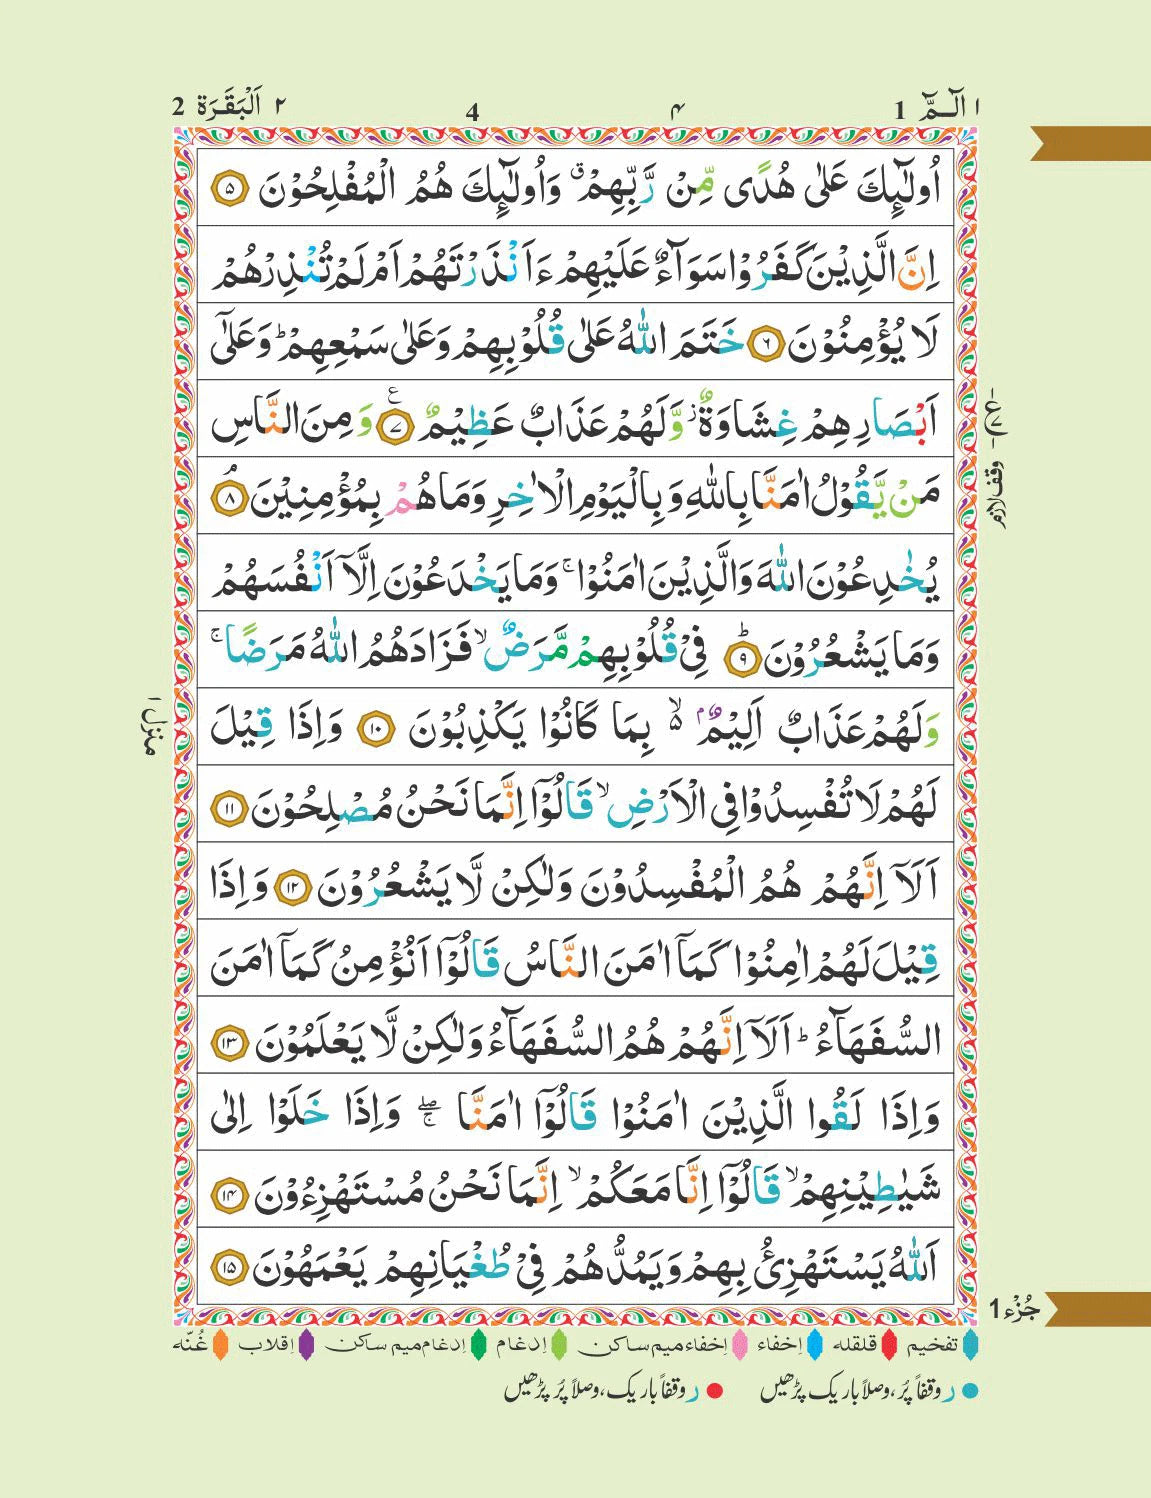 ١ الٓـمّٓ 1 ۴ 4 ٢ اَلْبَقَرَة 2
اُولٰٓئِكَ عَلٰى هُدًى مِّنْ رَّبِّهِمْ ۗ وَاُولٰٓئِكَ هُمُ الْمُفْلِحُوْنَ ۵
اِنَّ الَّذِيْنَ كَفَرُوْا سَوَآءٌ عَلَيْهِمْ ءَاَنْذَرْتَهُمْ اَمْ لَمْ تُنْذِرْهُمْ
لَا يُؤْمِنُوْنَ ۶ خَتَمَ اللّٰهُ عَلٰى قُلُوْبِهِمْ وَعَلٰى سَمْعِهِمْ ؕ وَعَلٰٓى
اَبْصَارِهِمْ غِشَاوَةٌ ز وَّلَهُمْ عَذَابٌ عَظِيْمٌ ۷ ع وَمِنَ النَّاسِ
مَنْ يَّقُوْلُ اٰمَنَّا بِاللّٰهِ وَبِالْيَوْمِ الْاٰخِرِ وَمَا هُمْ بِمُؤْمِنِيْنَ ۘ ۸
يُخٰدِعُوْنَ اللّٰهَ وَالَّذِيْنَ اٰمَنُوْا ۚ وَمَا يَخْدَعُوْنَ اِلَّآ اَنْفُسَهُمْ
وَمَا يَشْعُرُوْنَ ؕ ۹ فِىْ قُلُوْبِهِمْ مَّرَضٌ ۙ فَزَادَهُمُ اللّٰهُ مَرَضًا ۚ
وَلَهُمْ عَذَابٌ اَلِيْمٌۢ ۙ۵ بِمَا كَانُوْا يَكْذِبُوْنَ ۱۰ وَاِذَا قِيْلَ
لَهُمْ لَا تُفْسِدُوْا فِى الْاَرْضِ ۙ قَالُوْٓا اِنَّمَا نَحْنُ مُصْلِحُوْنَ ۱۱
اَلَآ اِنَّهُمْ هُمُ الْمُفْسِدُوْنَ وَلٰكِنْ لَّا يَشْعُرُوْنَ ۱۲ وَاِذَا
قِيْلَ لَهُمْ اٰمِنُوْا كَمَآ اٰمَنَ النَّاسُ قَالُوْٓا اَنُؤْمِنُ كَمَآ اٰمَنَ
السُّفَهَآءُ ؕ اَلَآ اِنَّهُمْ هُمُ السُّفَهَآءُ وَلٰكِنْ لَّا يَعْلَمُوْنَ ۱۳
وَاِذَا لَقُوا الَّذِيْنَ اٰمَنُوْا قَالُوْٓا اٰمَنَّا ۖۚ وَاِذَا خَلَوْا اِلٰى
شَيٰطِيْنِهِمْ ۙ قَالُوْٓا اِنَّا مَعَكُمْ ۙ اِنَّمَا نَحْنُ مُسْتَهْزِءُوْنَ ۱۴
اَللّٰهُ يَسْتَهْزِئُ بِهِمْ وَيَمُدُّهُمْ فِىْ طُغْيَانِهِمْ يَعْمَهُوْنَ ۱۵
ع ۷
وقف لازم
منزل ۱
جُزْء 1
تفخيم قلقله اِخفاء اِخفاءميم ساكن اِدغام اِدغام ميم ساكن اِقلاب غُنّه
ر وقفاً پُر، وصلاً باریک پڑھیں ر وقفاً باریک، وصلاً پُر پڑھیں